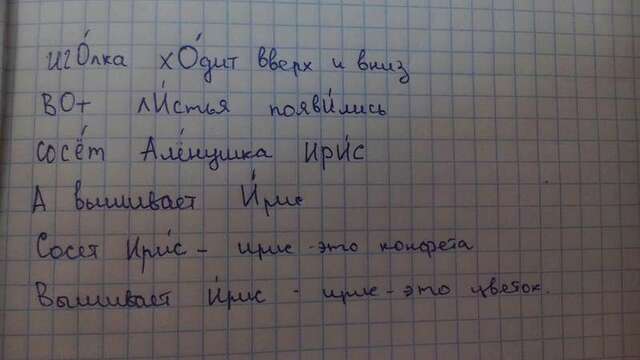 игО́лка хО́дит вверх и вниз
вОт лИ́стья появи́лись
сосёт Алёнушка ири́с
А вышивает И́рис
Сосет Ири́с - ирис - это конфета
Вышивает И́рис - ирис - это цветок.